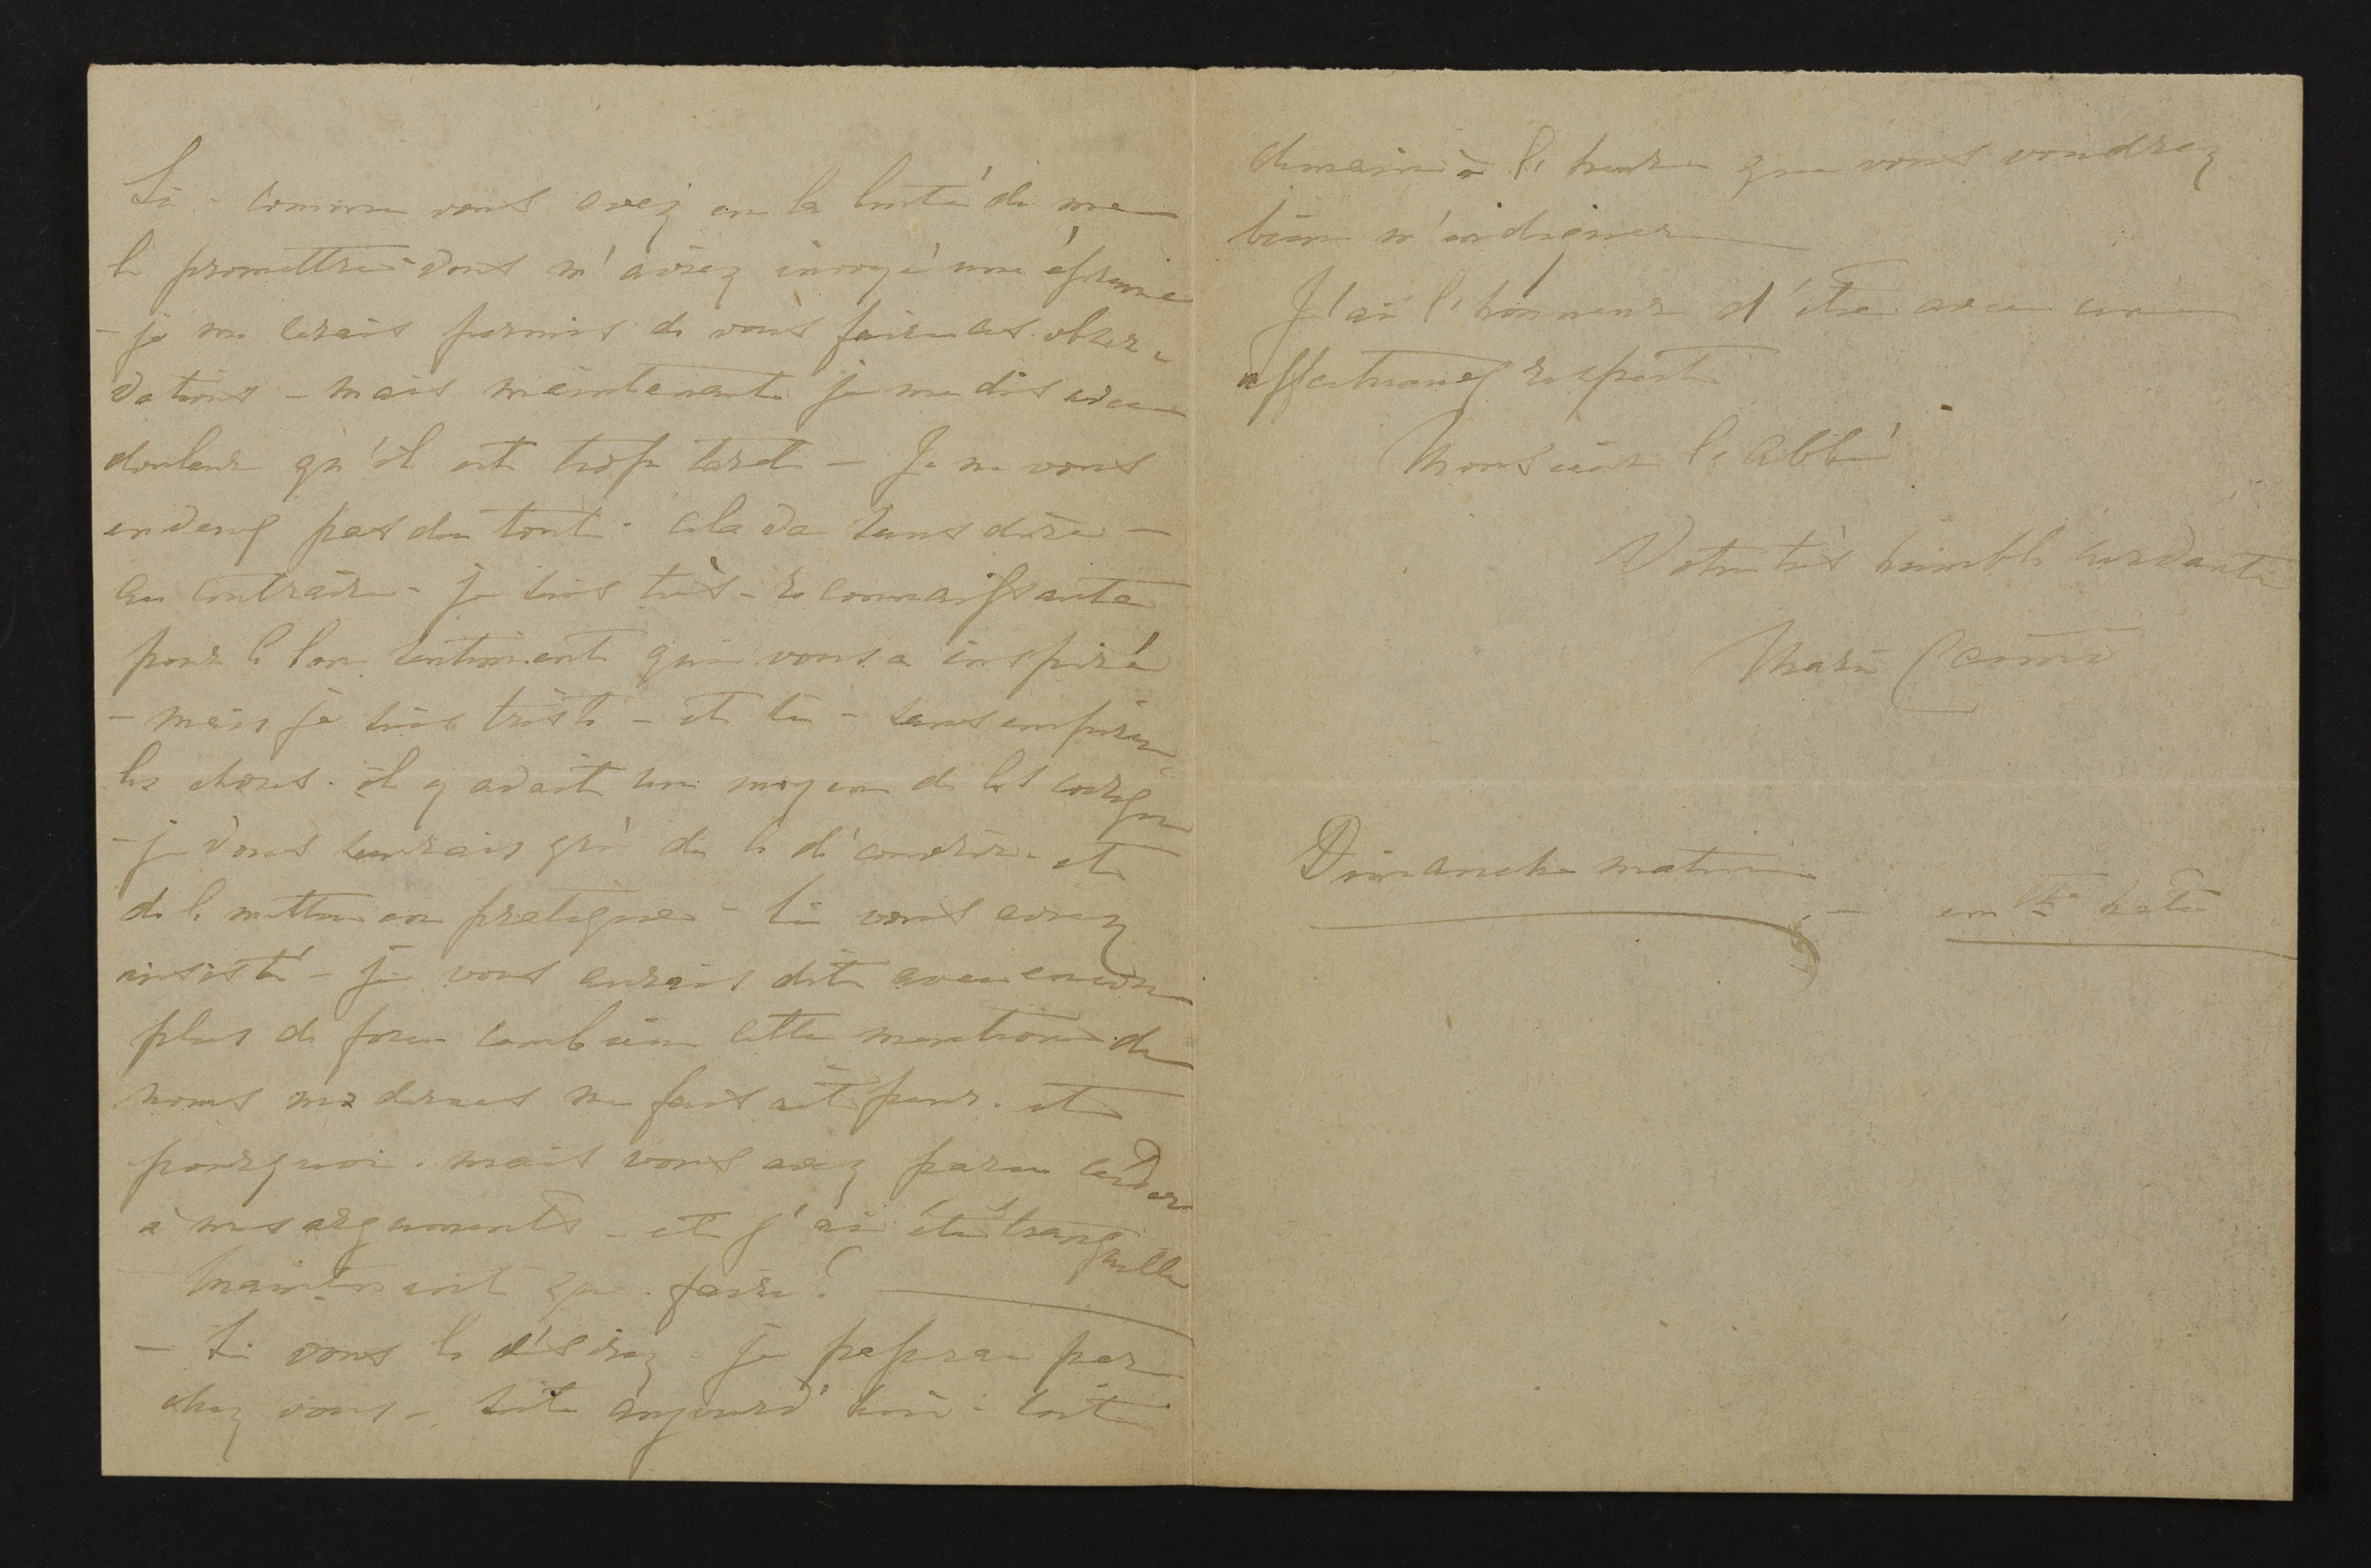 Si - comme vous avez eu la bonté de me
le promettre - vous m'aviez envoyé une épreuve
- je me serais permis de vous faire ces obser-
vations - mais maintenant je me dis avec
douleur qu'il est trop tard - Je ne vous
en veux pas du tout - cela va sans dire -
au contraire - je suis très-reconnaissante
pour le bon sentiment qui vous a inspiré
- mais je suis triste - et si - sans empirer
les choses - il y avait un moyen de les corriger
- je vous saurais gré de le découvrir et
de le mettre en pratique - Si vous aviez
insisté - je vous aurais dit avec encore
plus de force combien cette mention de
noms modernes me faisait peur - et
pourquoi - mais vous avez paru céder
à mes arguments - et j'ai été tranquille
Maintenant que faire ?
- Si vous le désirez - je passerai par
chez vous - soit aujourd'hui - soit
demain à l'heure que vous voudrez
bien m'indiquer
J'ai l'honneur d'être avec un
affectueux respect
Monsieur l'Abbé
Votre très humble servante
Marie
Dimanche matin
- en tte hâte